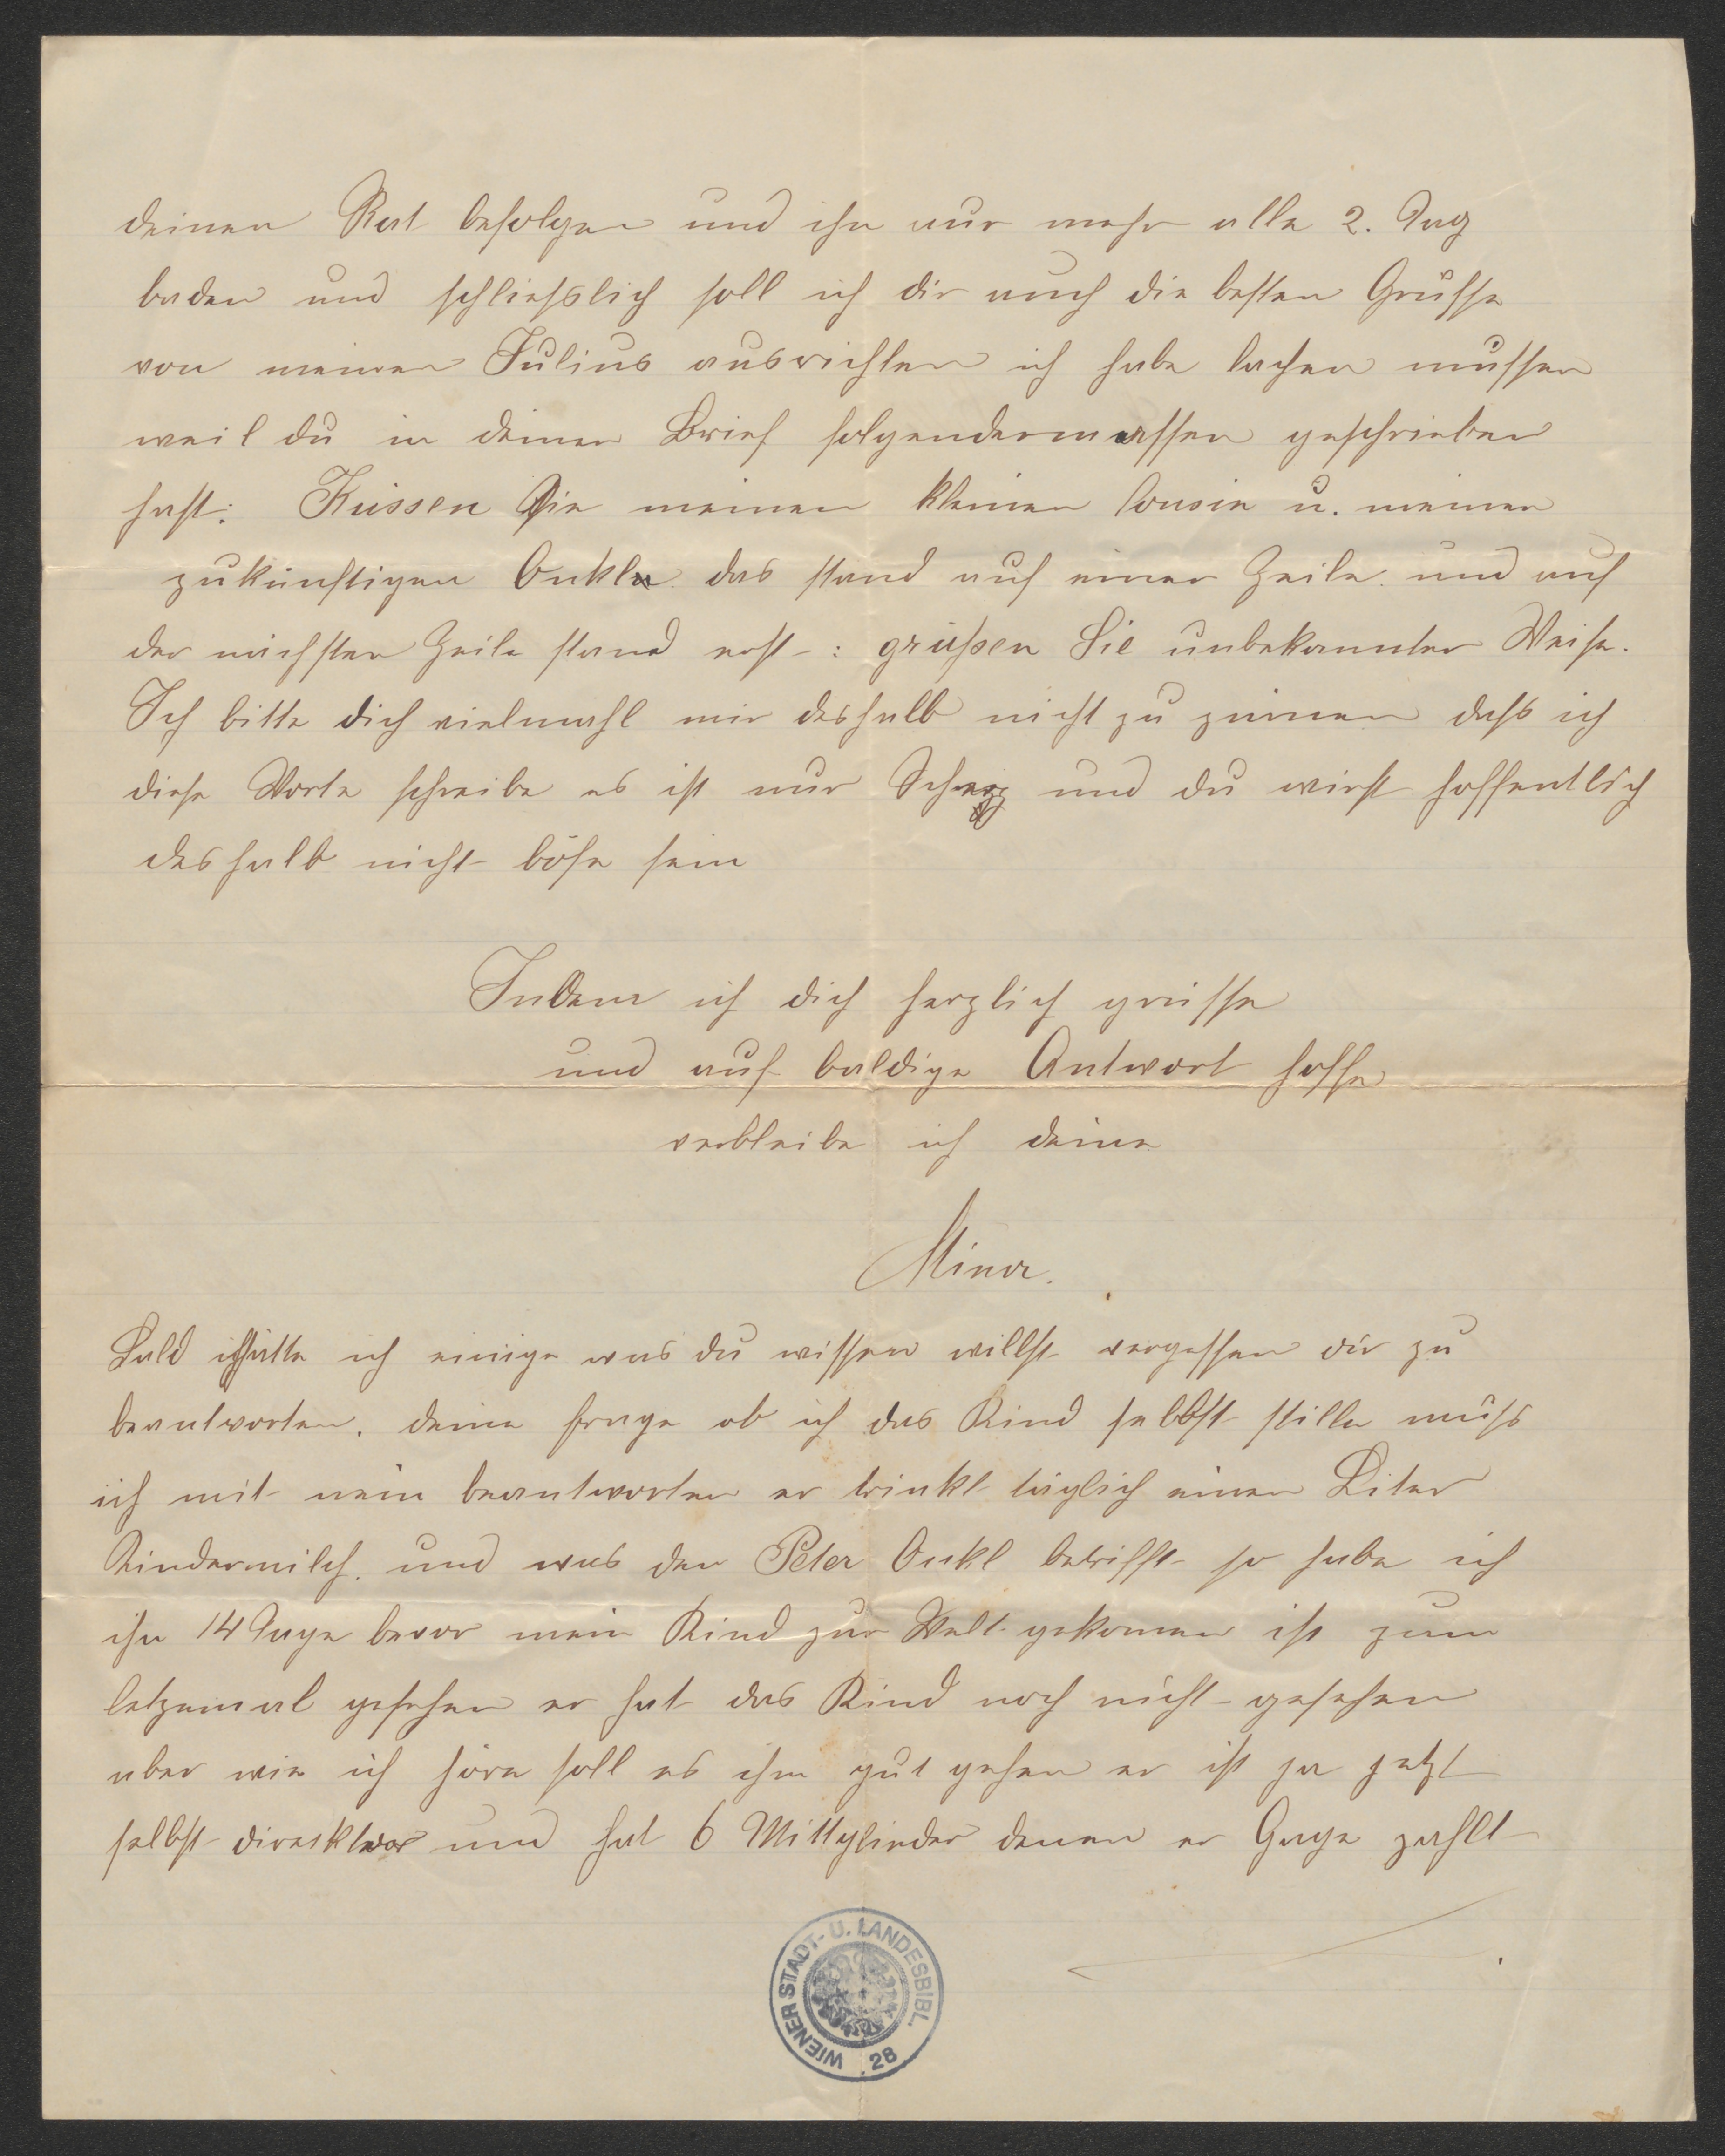 deinen Rat befolgen und ihn nur mehr alle 2. Tag
baden und schliesslich soll ich dir auch die besten Grüsse
von meinen Julius ausrichten ich habe lachen müssen
weil du in deinen Brief folgendermassen geschrieben
hast: Küssen Sie meinen kleinen Cousin u. meinen
zukünftigen Onkln das stand auf einer Zeile und auf
der nächsten Zeile stand erst: grüßen Sie unbekannter Weise.
Ich bitte dich vielmahl mir deshalb nicht zu zürnen dass ich
diese Worte schreibe es ist nur Scherz und du wirst hoffentlich
deshalb nicht böse sein
Indem ich dich herzlich grüsse
und auf baldige Antwort hoffe
verbleibe ich deine
Mina.
Bald hätte ich einige was du wissen willst vergessen dir zu
beantworten. deine frage ob ich das Kind selbst stille muss
ich mit nein beantworten er trinkt täglich einen Liter
Kindermilch. und was den Peter Onkl betrifft so habe ich
ihn 14 Tage bevor mein Kind zur Welt gekomen ist zum
letzemal gesehen er hat das Kind noch nicht gesehen
aber wie ich höre soll es ihm gut gehen er ist ja jetzt
selbst direcktor und hat 6 Mittglieder denen er Gage zahlt
WIENER STADT- U. LANDESBIBL. 28